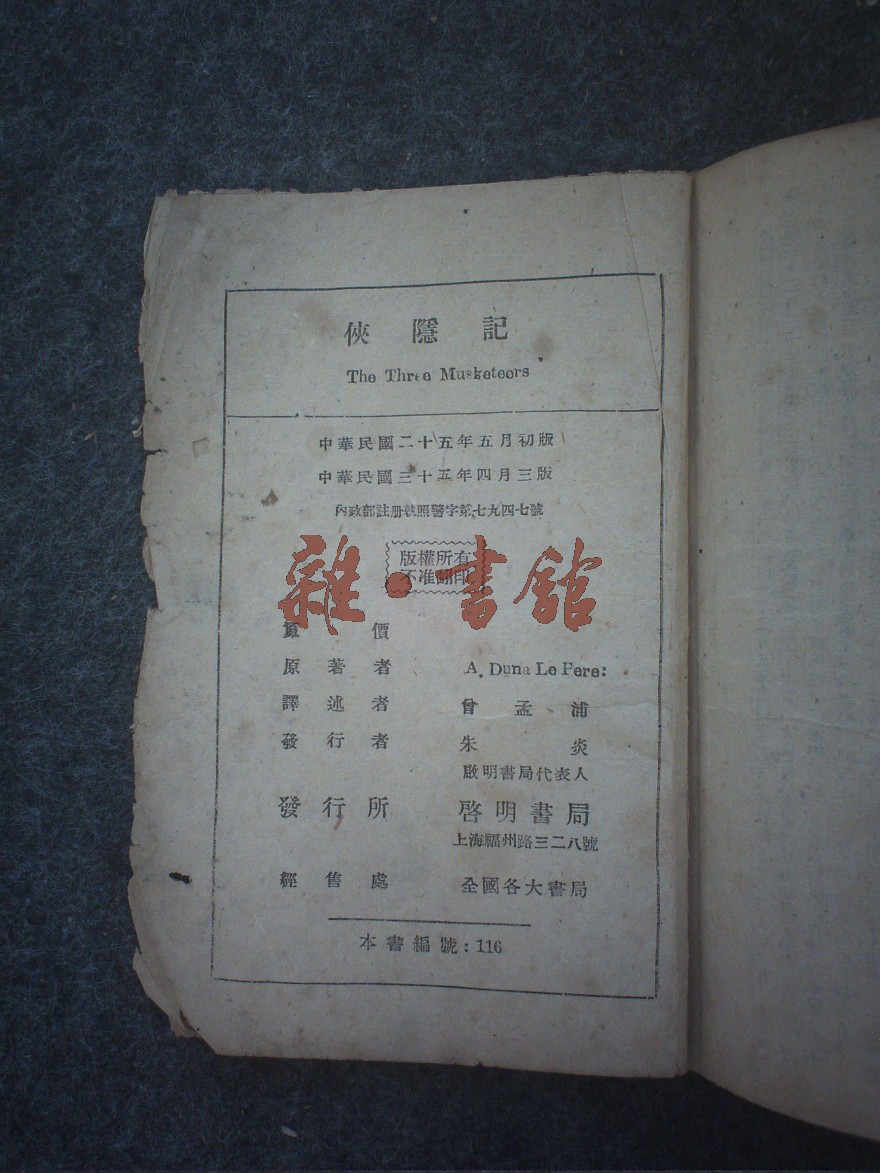 俠隱記
The Three Musketeers
中華民國二十五年五月初版
中華民國三十五年四月三版
內政部註册執照警字第七九四七號
版權所有
不准翻印
雜·書館
實價
原著者 A. Duma Le Pere:
譯述者 曾孟浦
發行者 朱炎
啟明書局代表人
發行所 啓明書局
上海福州路三二八號
經售處 全國各大書局
本書編號：116